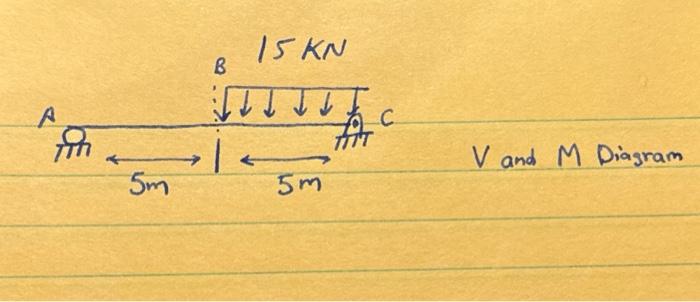 15 KN
B
A
C
5m
5m
V and M Diagram